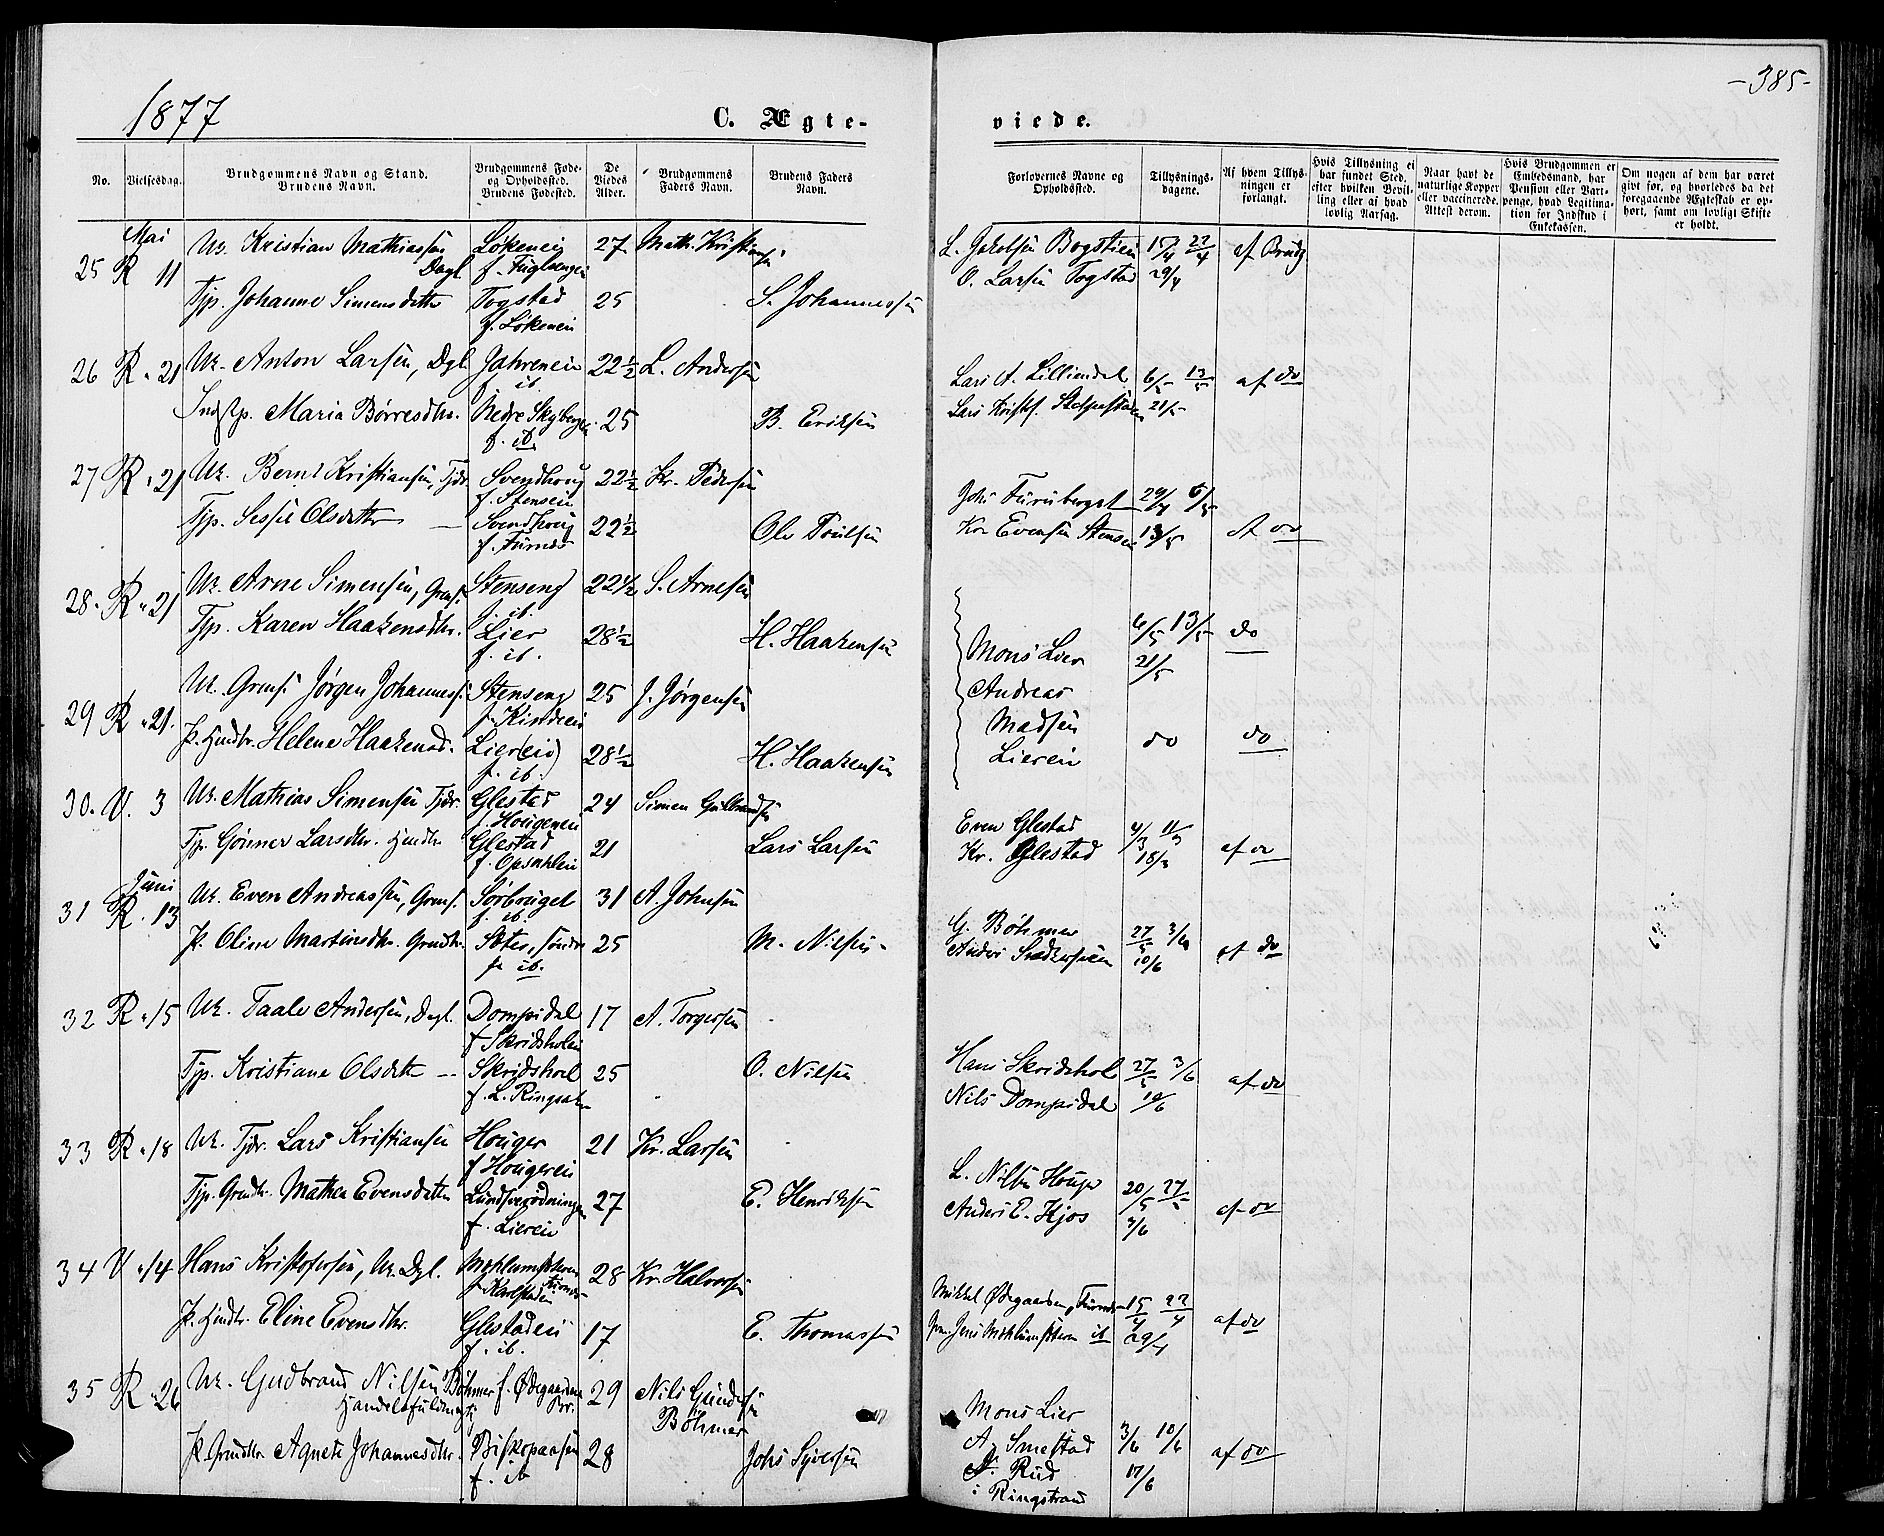 1877
C. Ægte-
viede.
- 385 -
No.
Vielsesdag.
Brudgommens Navn og Stand.
Brudens Navn.
Brudgommens Føde-
og Opholdssted.
Brudens Fødested.
De
Viedes
Alder.
Brudgommens
Faders Navn.
Brudens Faders
Navn.
Forlovernes Navne og
Opholdssted.
Tillysnings-
dagene.
Af hvem Tillys-
ningen er
forlangt.
Hvis Tillysning ei
har fundet Sted,
efter hvilken Bevil-
ling eller af hvad
lovlig Aarsag.
Naar havt de
naturlige Kopper
eller vaccinerede.
Attest derom.
Hvis Brudgommen er
Embedsmand, har
Pension eller Vart-
penge, hvad Legitima-
tion for Indskud i
Enkekassen.
Om nogen af dem har været
givt før, og hvorledes da det
foregaaende Ægteskab er op-
hørt, samt om lovligt Skifte
er holdt.
Mai
25 R 11 Uk. Kristian Mathiassen Løkeneie 27 Math. Kristiansen L. Jakobsen Bogstien 15/4 22/4 af Brudg
Dagl. f. Fuglsengen O. Larsen Togstad 29/4
Typ. Johanne Simensdatter Togstad 25 S. Johannessen
f. Løkeneie
26 R. " 21 Uk. Anton Larsen, Dgl. Jahreneie 22½ L. Andersen Lars A. Lilliendal 6/5 13/5 af do
f. ib.
Maria Børresdtr. Nedre Skyberg 25 B. Eriksen Lars Kristf. 21/5
f. ib
27 R. " 21 Uk. Bernt Kristiansen, Tjdr. Svendhoug 22½ Kr. Pedersen Johs Furuberget 29/4 6/5
f. Stenseie
Typ. Sessil Olsdatter Svendhoug 22½ Ole Poulsen Kr. Evensen Stenseie 13/5 af do
f. Furnes
28. R " 21 Uk. Arne Simensen, Grmf. Stenseng 22½ S. Arnesen
f. ib.
Typ. Karen Haakensdtr. Lier 28½ H. Haakensen Mons Lier 6/5 13/5 do
f. ib. 21/5
29 R " 21. U. Grmf. Jørgen Johanness. Stenseng 25 J. Jørgensen Andreas
f. Kindeie Madsen
P. Hmdtr. Helene Haakensd. Lier(eie) 28½ H. Haakensen Liereie do do
f. ib.
30. V. 3 Uk. Mathias Simensen Tjdr. Glestad 24 Simen Gulbrandsen Even Glestad 4/3 11/3
f. Hougeneie
Typ. Gønner Larsdtr. Hmdtr. Glestad 21 Lars Larsen Kr. Glestad 18/3 af do
f. Opsahleie
Juni
31 R. 13 Uk. Even Andreassen, Grmf. Sørbrugel 31 A. Johnsen G. Bøhmer 27/5 3/6
f. ib.
P. Oline Martinsdtr. Grmdtr. Stee, søndre 25 M. Nilsen Anders 10/6 af do
f. ib.
32 R. " 15 Uk. Taale Andersen, Dagl. Dompidal 17 A. Torgersen
f. Skridsholeie
Typ. Kristiane Olsdatter Skridshol 25 O. Nilsen Hans Skridshol 27/5 3/6 af do
f. L. Ringsaker Nils Dompidal 10/6
33 R. " 18 Uk. Tjdr. Lars Kristiansen Houger 21 Kr. Larsen L. Nilsen Houger 20/5 27/5
f. Hougereie
Typ. Grmdtr. Mathea Evensdatter 27 E. Henriksen Anders E. Hjos 3/6 af do
f. Liereie
34 V " 14 Hans Kristofersen, Uk. Dgl. 28 Kr. Halvorsen Mikkel Ødegaarden, Furnes 15/4 22/4 af do
P. Hmdtr. Eline Evensdtr. Glestadeie 17 E. Thomassen 29/4
f. ib.
35 R. " 26 Uk. Gudbrand Nilsen Bøhmer f. Ødegaarden 29 Nils Gundersen Mons Lier
Handelsfuldmægtig Bøhmer A. Smestad 3/6 10/6 af do
P. Grmdtr. Agnete Johannesdtr. Biskopaasen 28 Johs Syversen Rud 17/6
f. ib i Ringstrand